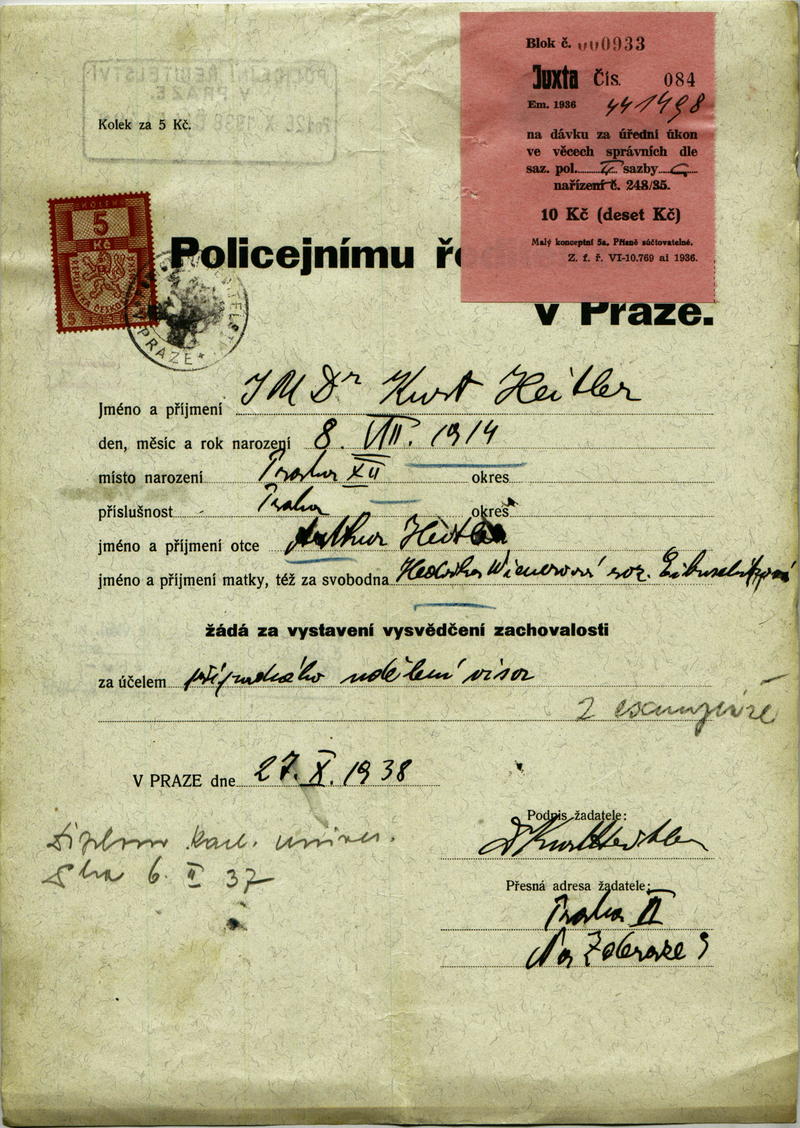 Blok č. 000933
Juxta Čís. 084
Em. 1936 441498
na dávku za úřední úkon
ve věcech správních dle
saz. pol. sazby
nařízení č. 248/35.
10 Kč (deset Kč)
Malý konceptní 5a. Přísně súčtovatelné.
Z. f. ř. VI-10.769 ai 1936.
POLICEJNÍ ŘEDITELSTVÍ
V PRAZE.
Kolek za 5 Kč.
KOLEK
5
Kč
REPUBLIKA ČESKOSLOVENSKÁ
PRAZE
Policejnímu ř
v Praze.
Jméno a příjmení JUDr Kurt Heitler
den, měsíc a rok narození 8. VIII. 1914
místo narození Praha XII okres
příslušnost Praha okres
jméno a příjmení otce Arthur Heitler
jméno a příjmení matky, též za svobodna Hedvika Wienerová roz.
žádá za vystavení vysvědčení zachovalosti
za účelem případného udělení visa
2 exempláře
V PRAZE dne 27. X. 1938
Diplom Karl. univer.
6. II 37
Podpis žadatele:
Dr Kurt Heitler
Přesná adresa žadatele:
Praha II
Na Zderaze 9